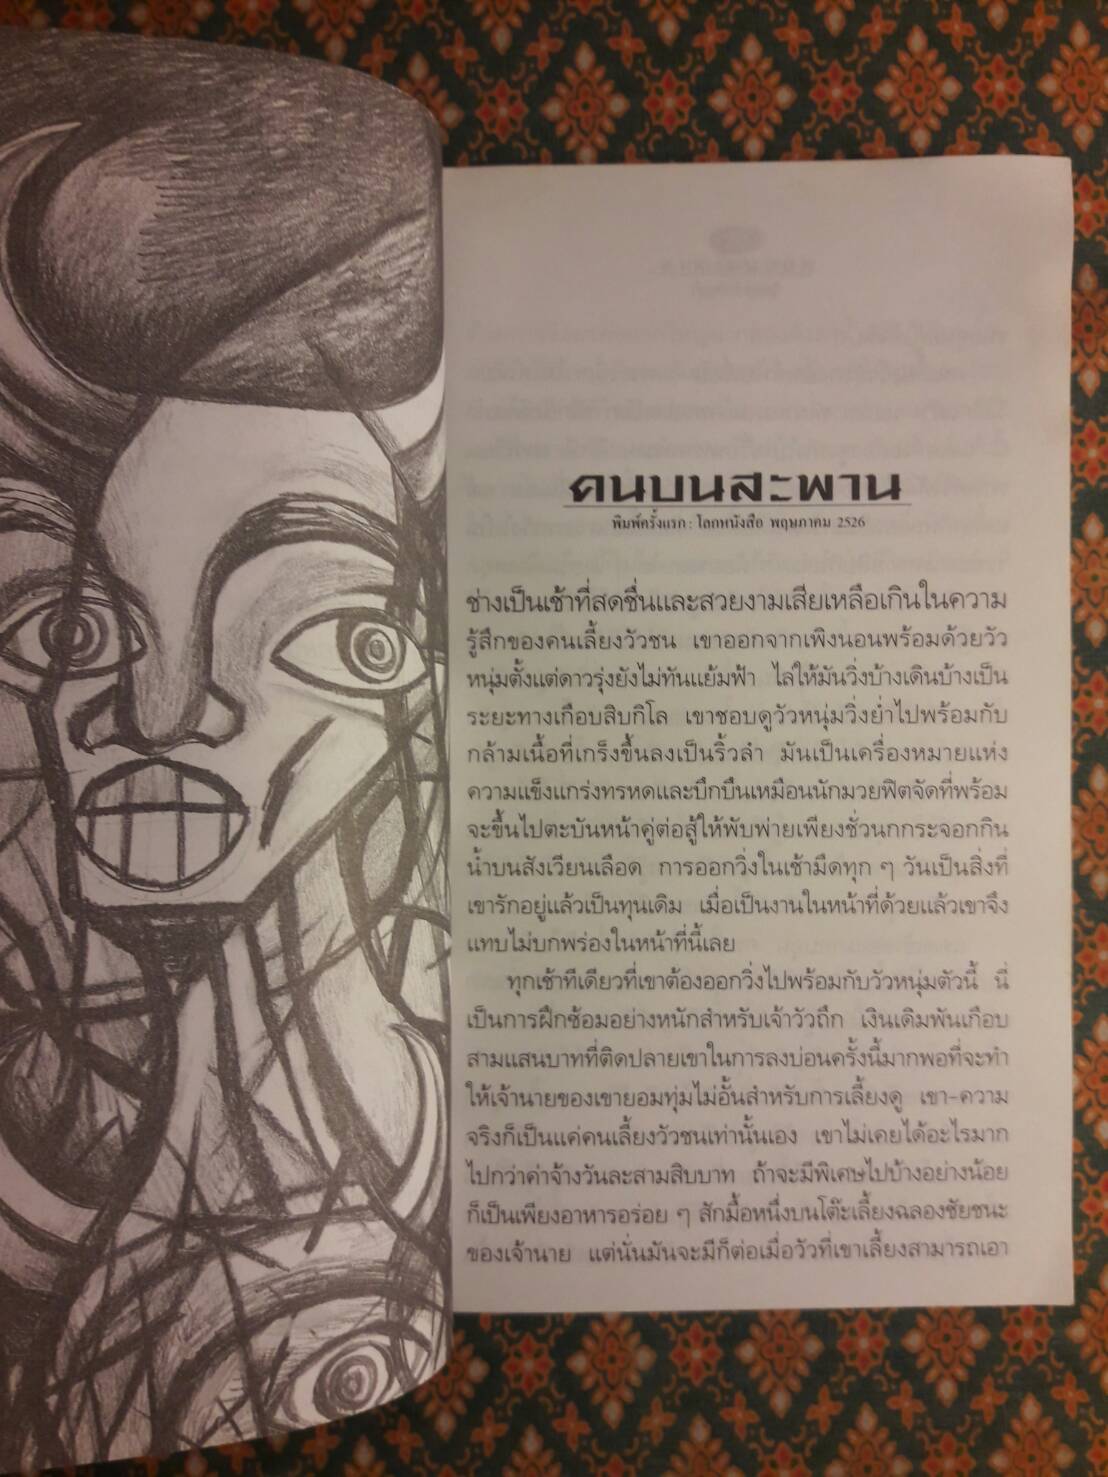 คนบนสะพาน
พิมพ์ครั้งแรก: โลกหนังสือ พฤษภาคม 2526
ช่างเป็นเช้าที่สดชื่นและสวยงามเสียเหลือเกินในความ
รู้สึกของคนเลี้ยงวัวชน เขาออกจากเพิงนอนพร้อมด้วยวัว
หนุ่มตั้งแต่ดาวรุ่งยังไม่ทันแย้มฟ้า ไล่ให้มันวิ่งบ้างเดินบ้างเป็น
ระยะทางเกือบสิบกิโล เขาชอบดูวัวหนุ่มวิ่งย่ำไปพร้อมกับ
กล้ามเนื้อที่เกร็งขึ้นลงเป็นริ้วลำ มันเป็นเครื่องหมายแห่ง
ความแข็งแกร่งทรหดและบึกบึนเหมือนนักมวยฟิตจัดที่พร้อม
จะขึ้นไปตะบันหน้าคู่ต่อสู้ให้พับพ่ายเพียงชั่วนกกระจอกกิน
น้ำบนสังเวียนเลือด การออกวิ่งในเช้ามืดทุก ๆ วันเป็นสิ่งที่
เขารักอยู่แล้วเป็นทุนเดิม เมื่อเป็นงานในหน้าที่ด้วยแล้วเขาจึง
แทบไม่บกพร่องในหน้าที่นี้เลย
ทุกเช้าทีเดียวที่เขาต้องออกวิ่งไปพร้อมกับวัวหนุ่มตัวนี้ นี่
เป็นการฝึกซ้อมอย่างหนักสำหรับเจ้าวัวถึก เงินเดิมพันเกือบ
สามแสนบาทที่ติดปลายเขาในการลงบ่อนครั้งนี้มากพอที่จะทำ
ให้เจ้านายของเขายอมทุ่มไม่อั้นสำหรับการเลี้ยงดู เขา-ความ
จริงก็เป็นแค่คนเลี้ยงวัวชนเท่านั้นเอง เขาไม่เคยได้อะไรมาก
ไปกว่าค่าจ้างวันละสามสิบบาท ถ้าจะมีพิเศษไปบ้างอย่างน้อย
ก็เป็นเพียงอาหารอร่อย ๆ สักมื้อหนึ่งบนโต๊ะเลี้ยงฉลองชัยชนะ
ของเจ้านาย แต่นั่นมันจะมีก็ต่อเมื่อวัวที่เขาเลี้ยงสามารถเอา